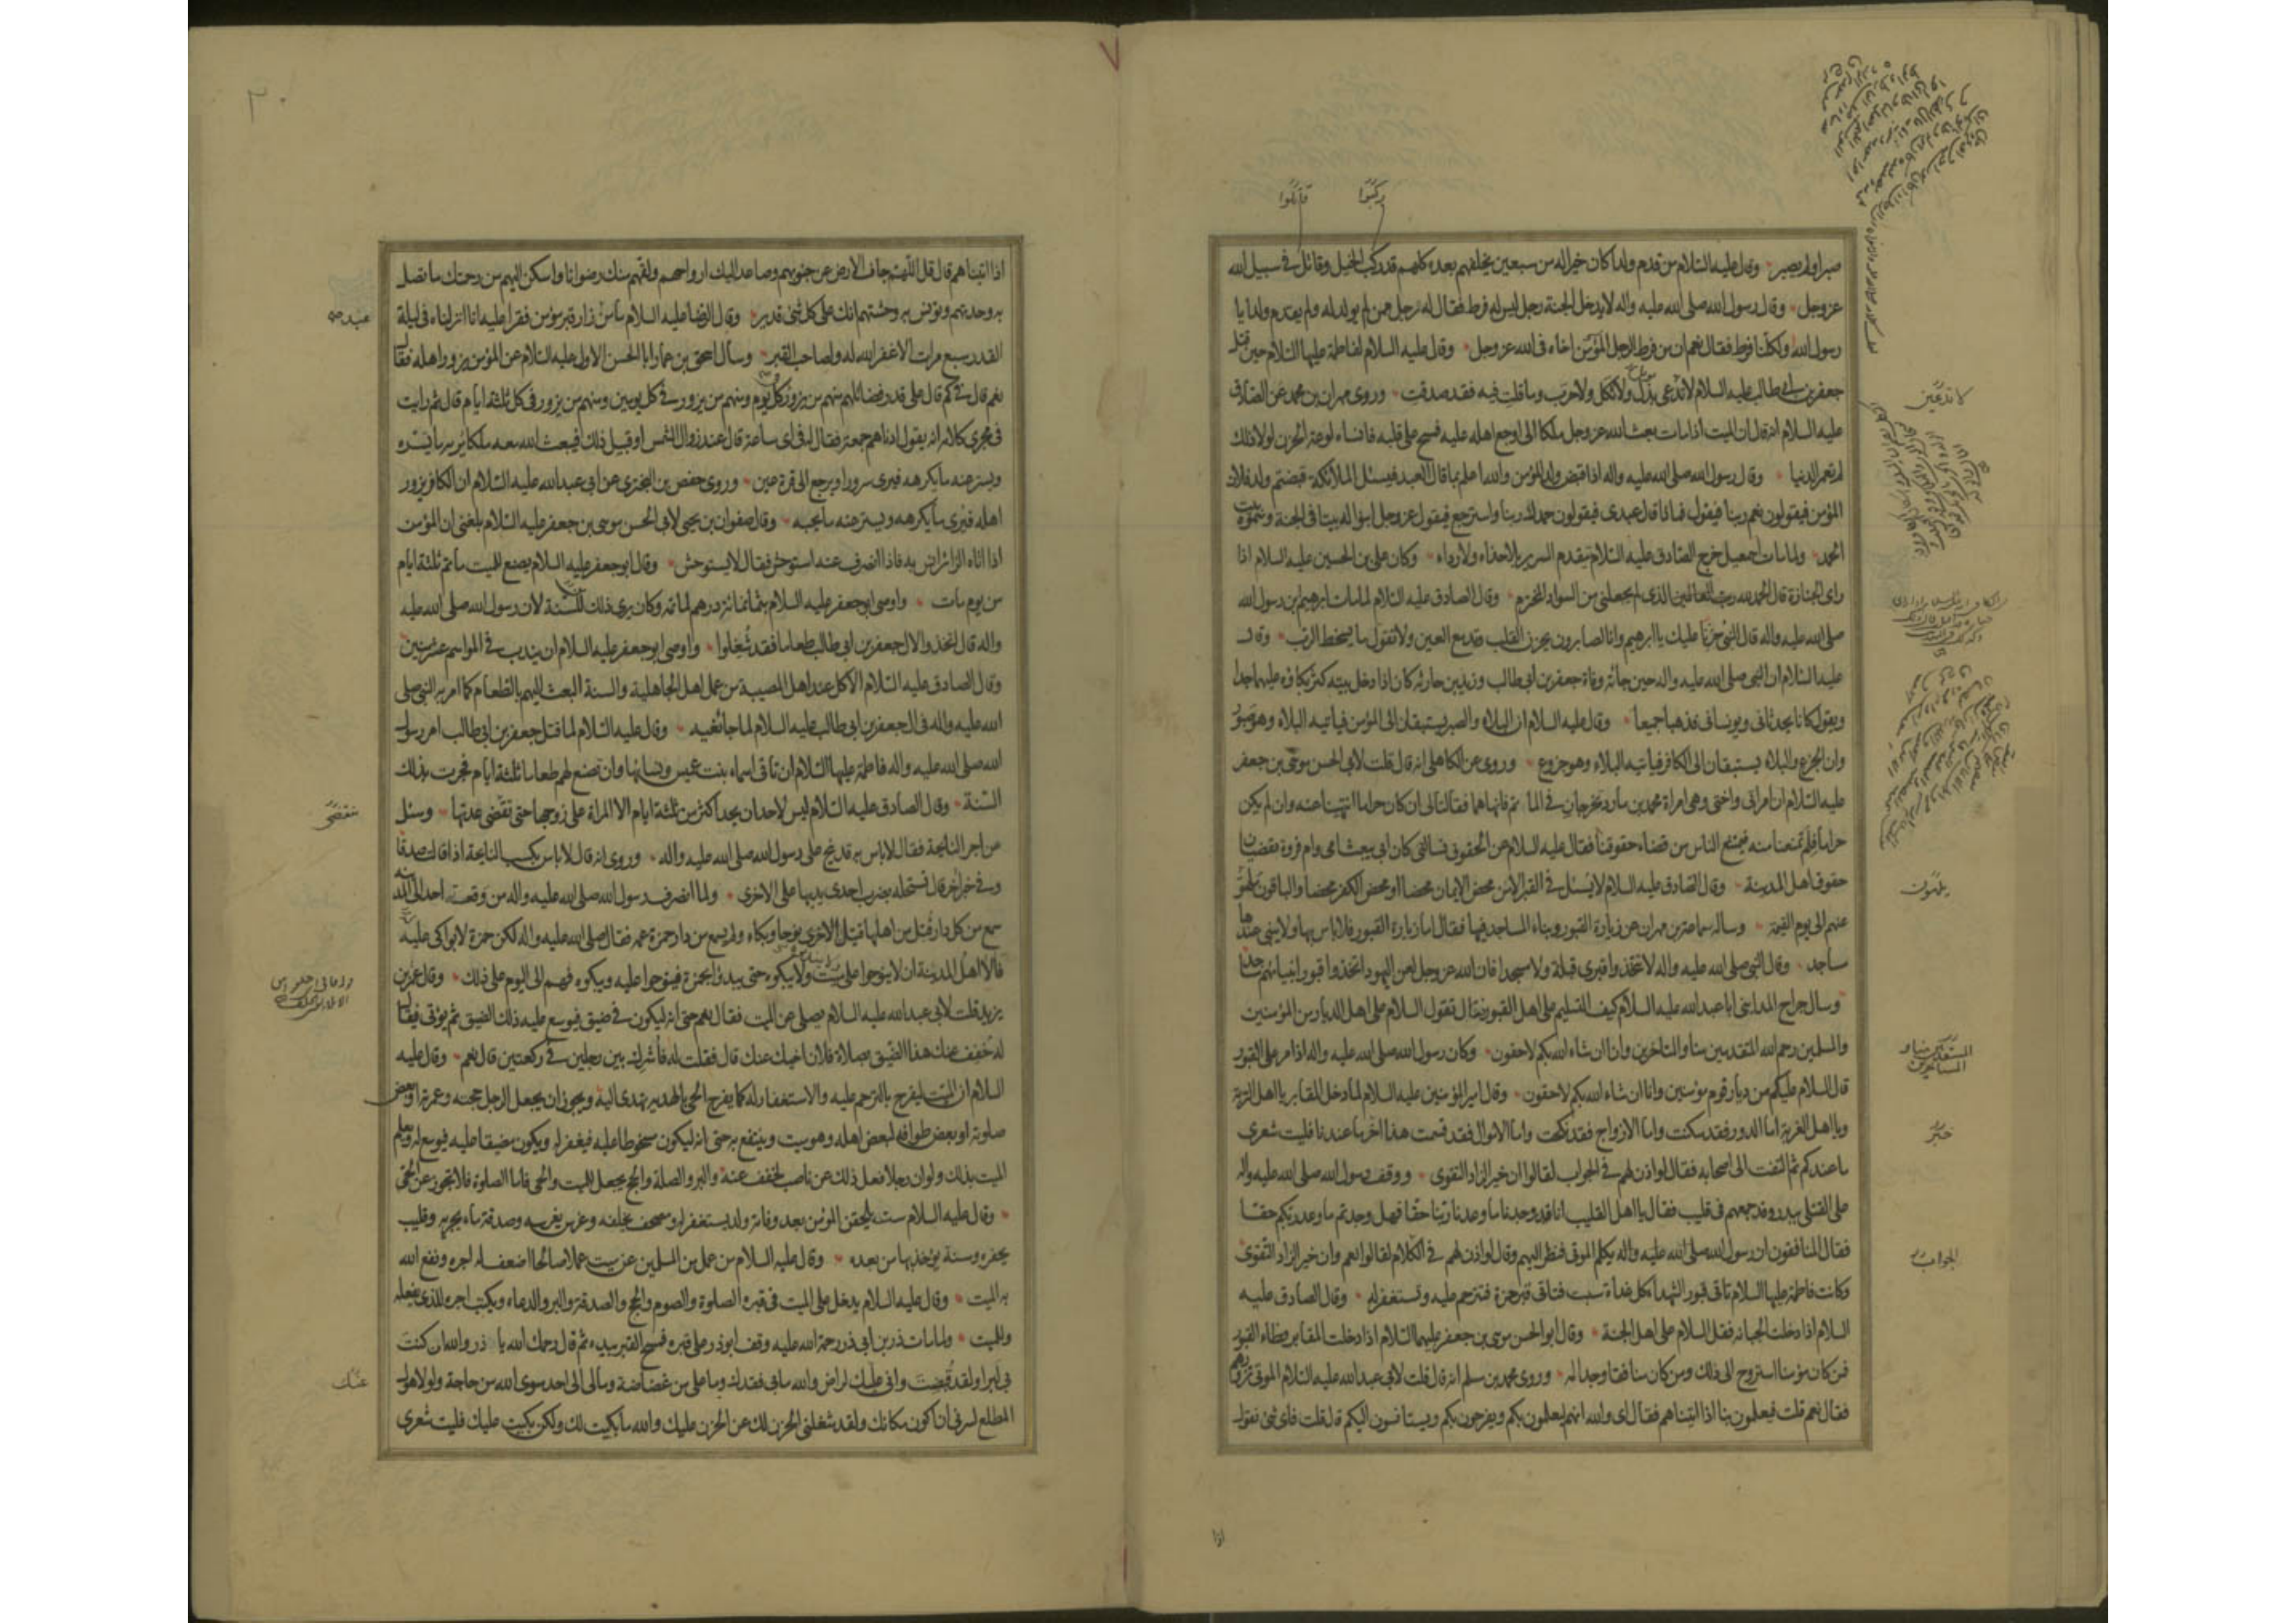 ركبوا
قاتلوا
صبر او لم يصبر وقال عليه السلام من قدم ولدا كان خيرا له من سبعين يخلفهم بعده كلهم قد ركب الخيل وقاتل في سبيل الله
عز وجل وقال رسول الله صلى الله عليه واله لا يدخل الجنة رجل ليس له فرط فقال له رجل ممن لم يولد له ولم يقدم ولدا يا
رسول الله ولكلنا فرط فقال نعم ان من فرط الرجل المؤمن اخاه في الله عز وجل وقال عليه السلام لفاطمة عليها السلام حين قتل
جعفر بن ابي طالب عليه السلام لا تدعي بذل ولا ثكل ولا حرب وما قلت فيه فقد صدقت وروى مهران بن محمد عن الصادق
عليه السلام انه قال ان الميت اذا مات بعث الله عز وجل ملكا الى اوجع اهله عليه فمسح على قلبه فانساه لوعة الحزن لولا ذلك
لم تعمر الدنيا وقال رسول الله صلى الله عليه واله اذا قبض ولد المؤمن والله اعلم بما قال العبد فيسئل الملائكة قبضتم ولد فلان
المؤمن فيقولون نعم ربنا فيقول فماذا قال عبدى فيقولون حمدك ربنا واسترجع فيقول عز وجل ابنوا له بيتا في الجنة وسموه بيت
الحمد ولما مات اسمعيل خرج الصادق عليه السلام يتقدم السرير بلا حذاء ولا رداء وكان علي بن الحسين عليه السلام اذا
راى الجنازة قال الحمد لله رب العالمين الذى لم يجعلنى من السواد المخترم وقال الصادق عليه السلام لما مات ابرهيم بن رسول الله
صلى الله عليه واله قال النبي حزنا عليك يا ابرهيم وانا لصابرون يحزن القلب وتدمع العين ولا نقول ما يسخط الرب وقال
عليه السلام ان النبي صلى الله عليه واله حين جائه وفاة جعفر بن ابي طالب وزيد بن حارثه كان اذا دخل بيته كثر بكاؤه عليهما جدا
ويقول كانا يحدثانى ويونسانى فذهبا جميعا وقال عليه السلام ان البلاء والصبر يستبقان الى المؤمن فياتيه البلاء وهو صبور
وان الجزع والبلاء يستبقان الى الكافر فياتيه البلاء وهو جزوع وروى عن الكاهلى انه قال قلت لابي الحسن موسى بن جعفر
عليه السلام ان امراتى واختى وهى امراة محمد بن مارد تخرجان في المآتم فانهاهما فقالتا لى ان كان حراما انتهينا عنه وان لم يكن
حراما فلم تمنعنا منه فيمتنع الناس من قضاء حقوقنا فقال عليه السلام عن الحقوق تسالنى كان ابي يبعث امى وام فروة تقضيان
حقوق اهل المدينة وقال الصادق عليه السلام لا يسئل في القبر الا من محض الايمان محضا او محض الكفر محضا والباقون يلهى
عنهم الى يوم القيمة وساله سماعة بن مهران عن زيارة القبور وبناء المساجد فيها فقال اما زيارة القبور فلا باس بها ولا يبنى عندها
مساجد وقال النبي صلى الله عليه واله لا تتخذوا قبرى قبلة ولا مسجدا فان الله عز وجل لعن اليهود اتخذوا قبور انبيائهم مساجد
وسال جراح المدائنى ابا عبد الله عليه السلام كيف التسليم على اهل القبور فقال تقول السلام على اهل الديار من المؤمنين
والمسلمين رحم الله المتقدمين منا والمتاخرين وانا ان شاء الله بكم لاحقون وكان رسول الله صلى الله عليه واله اذا مر على القبور
قال السلام عليكم من ديار قوم مؤمنين وانا ان شاء الله بكم لاحقون وقال امير المؤمنين عليه السلام لما دخل المقابر يا اهل التربة
ويا اهل الغربة اما الدور فقد سكنت واما الازواج فقد نكحت واما الاموال فقد قسمت هذا خبر ما عندنا فليت شعرى
ما عندكم ثم التفت الى اصحابه فقال لو اذن لهم في الجواب لقالوا ان خير الزاد التقوى ووقف رسول الله صلى الله عليه واله
على القتلى ببدر وقد جمعهم في قليب فقال يا اهل القليب انا قد وجدنا ما وعدنا ربنا حقا فهل وجدتم ما وعد ربكم حقا
فقال المنافقون ان رسول الله صلى الله عليه واله يكلم الموتى فنظر اليهم وقال لو اذن لهم في الكلام لقالوا نعم وان خير الزاد التقوى
وكانت فاطمة عليها السلام تاتى قبور الشهداء كل غداة سبت فتاتى قبر حمزة فتترحم عليه وتستغفر له وقال الصادق عليه
السلام اذا دخلت الجبانة فقل السلام على اهل الجنة وقال ابو الحسن موسى بن جعفر عليهما السلام اذا دخلت المقابر فطاء القبور
فمن كان مؤمنا استروح الى ذلك ومن كان منافقا وجد المه وروى محمد بن مسلم انه قال قلت لابي عبد الله عليه السلام الموتى نزورهم
فقال نعم قلت فيعلمون بنا اذا اتيناهم فقال اى والله انهم ليعلمون بكم ويفرحون بكم ويستانسون اليكم قال قلت فاى شئ نقول
لا تدعين
يلهون
المستقدمين منا و
المستاخرين
خبر
الجواب
اذا
٣٠
اذا اتيناهم قال قل اللهم جاف الارض عن جنوبهم وصاعد اليك ارواحهم ولقهم منك رضوانا واسكن اليهم من رحمتك ما تصل
به وحدتهم وتونس به وحشتهم انك على كل شئ قدير وقال الرضا عليه السلام ما من زار قبر مؤمن فقرا عليه انا انزلناه في ليلة
القدر سبع مرات الا غفر الله له ولصاحب القبر وسال اسحق بن عمار ابا الحسن الاول عليه السلام عن المؤمن يزور اهله فقال
نعم قال في كم قال على قدر فضائلهم منهم من يزور كل يوم ومنهم من يزور في كل يومين ومنهم من يزور في كل ثلثة ايام قال ثم رايت
في مجرى كلامه انه يقول ادناهم جمعة فقال له في اى ساعة قال عند زوال الشمس او قبيل ذلك فيبعث الله معه ملكا يريه ما يسره
ويستر عنه ما يكرهه فيرى سرورا ويرجع الى قرة عين وروى حفص بن البخترى عن ابي عبد الله عليه السلام ان الكافر يزور
اهله فيرى ما يكرهه ويستر عنه ما يحبه وقال صفوان بن يحيى لابي الحسن موسى بن جعفر عليه السلام بلغنى ان المؤمن
اذا اتاه الزائر انس به فاذا انصرف عنه استوحش فقال لا يستوحش وقال ابو جعفر عليه السلام يصنع للميت ماتم ثلثة ايام
من يوم مات واوصى ابو جعفر عليه السلام بثمانمائة درهم لماتمه وكان يرى ذلك للسنة لان رسول الله صلى الله عليه
واله قال اتخذوا لال جعفر بن ابي طالب طعاما فقد شغلوا واوصى ابو جعفر عليه السلام ان يندب في المواسم عشر سنين
وقال الصادق عليه السلام الاكل عند اهل المصيبة من عمل اهل الجاهلية والسنة البعث اليهم بالطعام كما امر به النبي صلى
الله عليه واله في ال جعفر بن ابي طالب عليه السلام لما جاء نعيه وقال عليه السلام لما قتل جعفر بن ابي طالب امر رسول
الله صلى الله عليه واله فاطمة عليها السلام ان تاتى اسماء بنت عميس ونسائها وان تصنع لهم طعاما ثلثة ايام فجرت بذلك
السنة وقال الصادق عليه السلام ليس لاحد ان يحد اكثر من ثلثة ايام الا المراة على زوجها حتى تقضى عدتها وسئل
عن اجر النايحة فقال لا باس به قد نيح على رسول الله صلى الله عليه واله وروى انه قال لا باس بكسب النايحة اذا قالت صدقا
وفي خبر اخر قال تستحله بضرب احدى يديها على الاخرى ولما انصرف رسول الله صلى الله عليه واله من وقعة احد الى المدينة
سمع من كل دار قتل من اهلها قتيل نوحا وبكاء ولم يسمع من دار حمزة عمه فقال صلى الله عليه واله لكن حمزة لا بواكى عليه
فالا اهل المدينة ان لا ينوحوا على ميت ولا يبكوه حتى يبدؤا بحمزة فينوحوا عليه ويبكوه فهم الى اليوم على ذلك وقال عمر بن
يزيد قلت لابي عبد الله عليه السلام يصلى عن الميت فقال نعم حتى انه ليكون في ضيق فيوسع عليه ذلك الضيق ثم يؤتى فيقال
له خفف عنك هذا الضيق بصلاة فلان اخيك عنك قال فقلت له فاشرك بين رجلين في ركعتين قال نعم وقال عليه
السلام ان الميت ليفرح بالترحم عليه والاستغفار له كما يفرح الحى بالهدية تهدى اليه ويجوز ان يجعل الرجل حجته وعمرته او بعض
صلوته او بعض طوافه لبعض اهله وهو ميت وينتفع به حتى انه ليكون مسخوطا عليه فيغفر له ويكون مضيقا عليه فيوسع له ويعلم
الميت بذلك ولو ان رجلا فعل ذلك عن ناصب لخفف عنه والبر والصلة والحج يجعل للميت والحى فاما الصلوة فلا تجوز عن الحى
وقال عليه السلام ست يلحقن المؤمن بعد وفاته ولد يستغفر له ومصحف يخلفه وغرس يغرسه وصدقة ماء يجريه وقليب
يحفره وسنة يؤخذ بها من بعده وقال عليه السلام من عمل من المسلمين عن ميت عملا صالحا اضعف له اجره ونفع الله
به الميت وقال عليه السلام يدخل على الميت في قبره الصلوة والصوم والحج والصدقة والبر والدعاء ويكتب اجره للذى يفعله
وللميت ولما مات ذر بن ابي ذر رحمة الله عليه وقف ابو ذر على قبره فمسح القبر بيده ثم قال رحمك الله يا ذر والله ان كنت
بي لبرا ولقد قبضت وانى عليك لراض والله ما بي فقدك وما على من غضاضة وما لى الى احد سوى الله من حاجة ولولا هول
المطلع لسرنى ان اكون مكانك ولقد شغلنى الحزن لك عن الحزن عليك والله ما بكيت لك ولكن بكيت عليك فليت شعرى
تنقضى
عنك